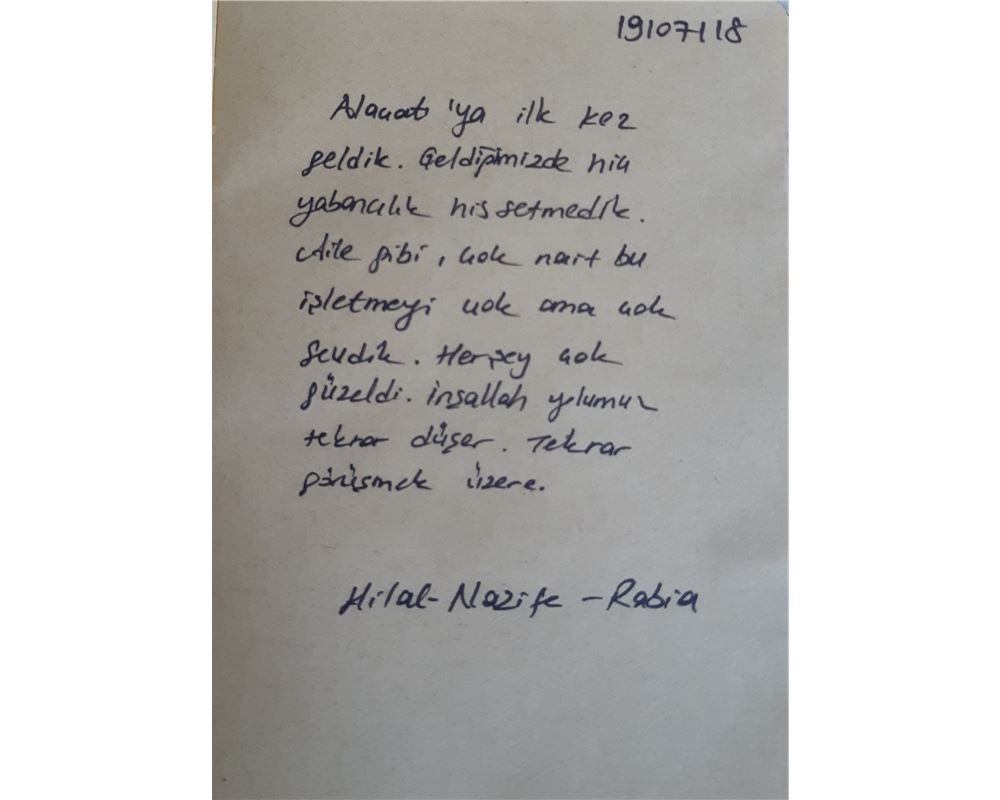 19/07/18
Alaçatı'ya ilk kez
geldik. Geldiğimizde hiç
yabancılık hissetmedik.
Aile gibi, çok naif bu
işletmeyi çok ama çok
sevdik. Herşey çok
güzeldi. İnşallah yolumuz
tekrar düşer. Tekrar
görüşmek üzere.
Hilal-Nazife-Rabia